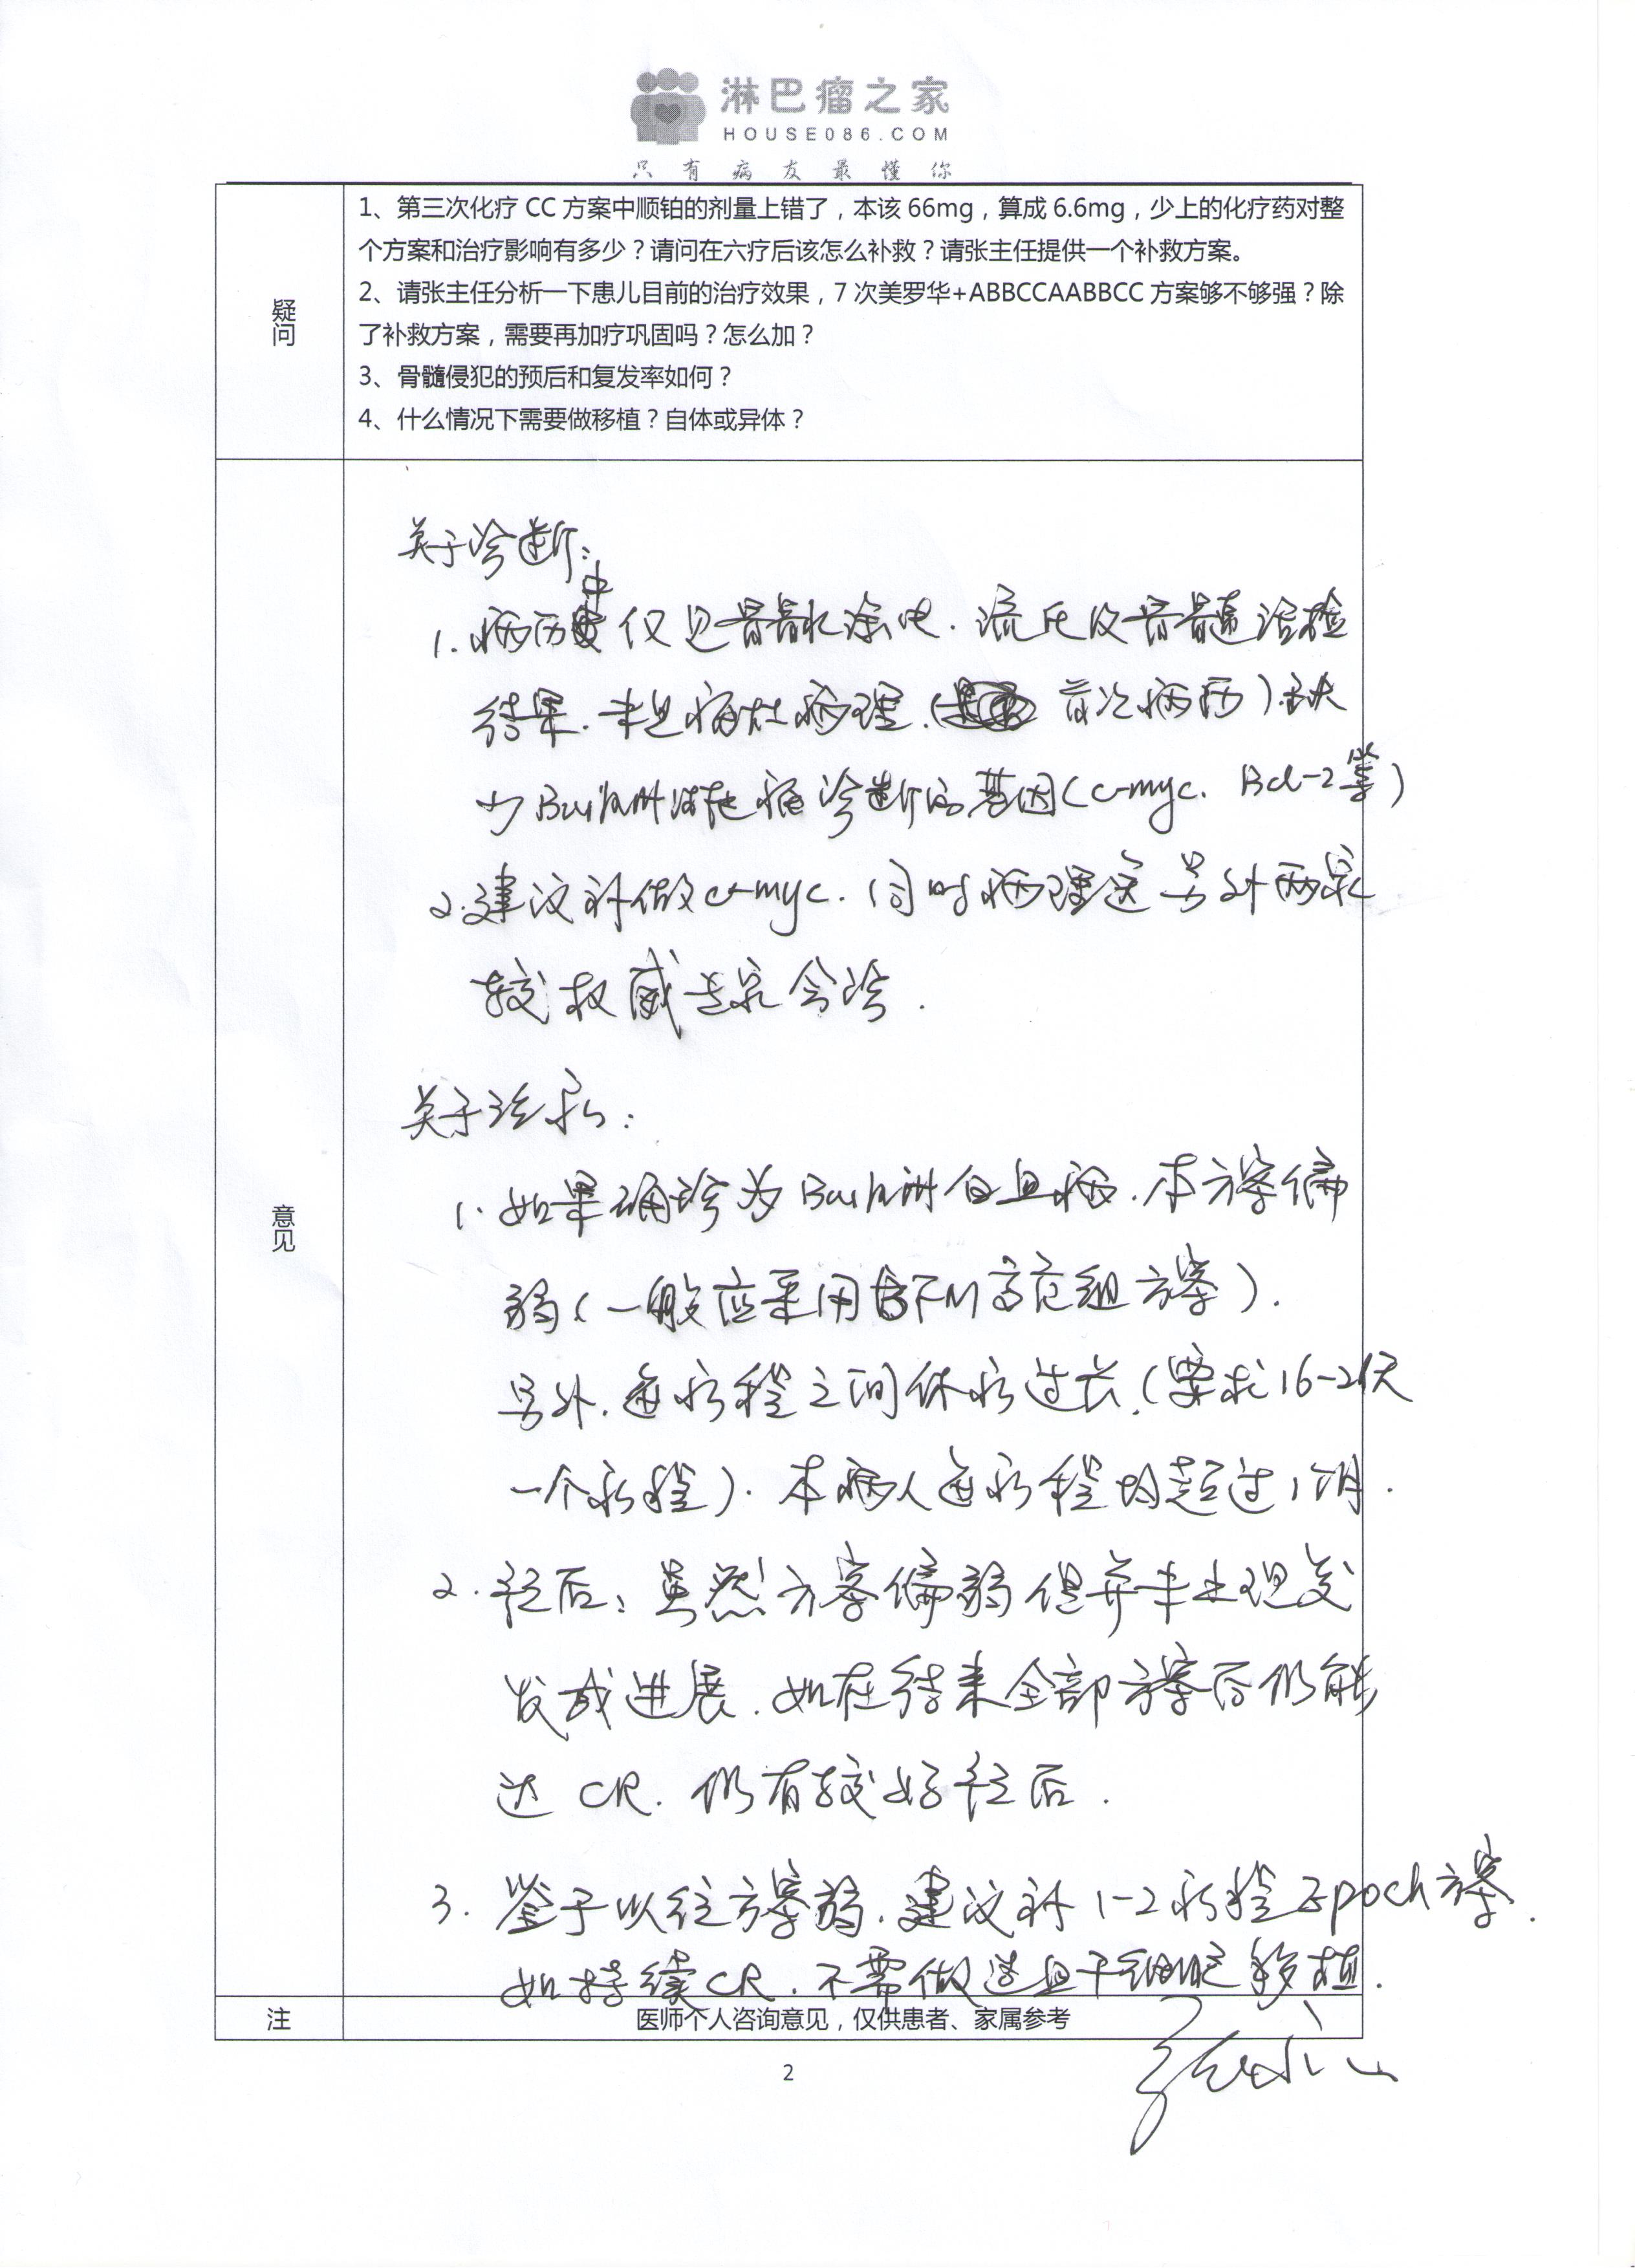 淋巴瘤之家
HOUSE086.COM
只有病友最懂你
疑问
1、第三次化疗 CC 方案中顺铂的剂量上错了，本该 66mg，算成 6.6mg，少上的化疗药对整
个方案和治疗影响有多少？请问在六疗后该怎么补救？请张主任提供一个补救方案。
2、请张主任分析一下患儿目前的治疗效果，7 次美罗华+ABBCCAABBCC 方案够不够强？除
了补救方案，需要再加疗巩固吗？怎么加？
3、骨髓侵犯的预后和复发率如何？
4、什么情况下需要做移植？自体或异体？
意见
关于诊断：
1. 病历中仅见骨髓涂片.流氏及骨髓活检
结果.未见病灶病理.(首次病历).缺
少Burkitt淋巴瘤诊断的基因(c-myc. Bcl-2等)
2.建议补做c-myc.同时病理送另外两家
较权威专家会诊.
关于治疗：
1. 如果确诊为Burkitt白血病.本方案偏
弱(一般应采用BFM高危组方案).
另外.每疗程之间休疗过长.(要求16-21天
一个疗程).本病人每疗程均超过1个月.
2. 预后：虽然方案偏弱但并未出现复
发或进展.如在结束全部方案后仍能
达CR.仍有较好预后.
3. 鉴于以往方案弱.建议补1-2疗程Epoch方案.
如持续CR.不需做造血干细胞移植.
注
医师个人咨询意见，仅供患者、家属参考
2